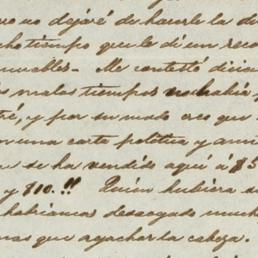 no dejaré de hacerle la di
cho tiempo que le di un reco
muebles. Me contestó dicie
s malos tiempos no había
tré, y por su modo creo que
on una carta política y ami
se ha vendido aquí á $5
y $10.!! Quien hubiera s
habiamos descogado much
mas que agachar la cabeza.